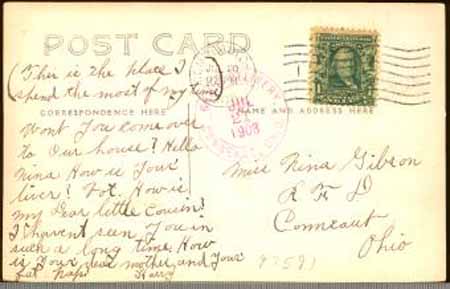 POST CARD
(This is the place I
spend the most of my time)
CORRESPONDENCE HERE
NAME AND ADDRESS HERE
Wont You come over
to Our house? Hello
Nina How is Your
liver? Hot. How is
my Dear little Cousin?
I havent seen You in
such a long time. How
is Your dear mother, and Your
Harry
JUL
1908
1
Miss Nina Gibson
R F D
Conneaut
Ohio